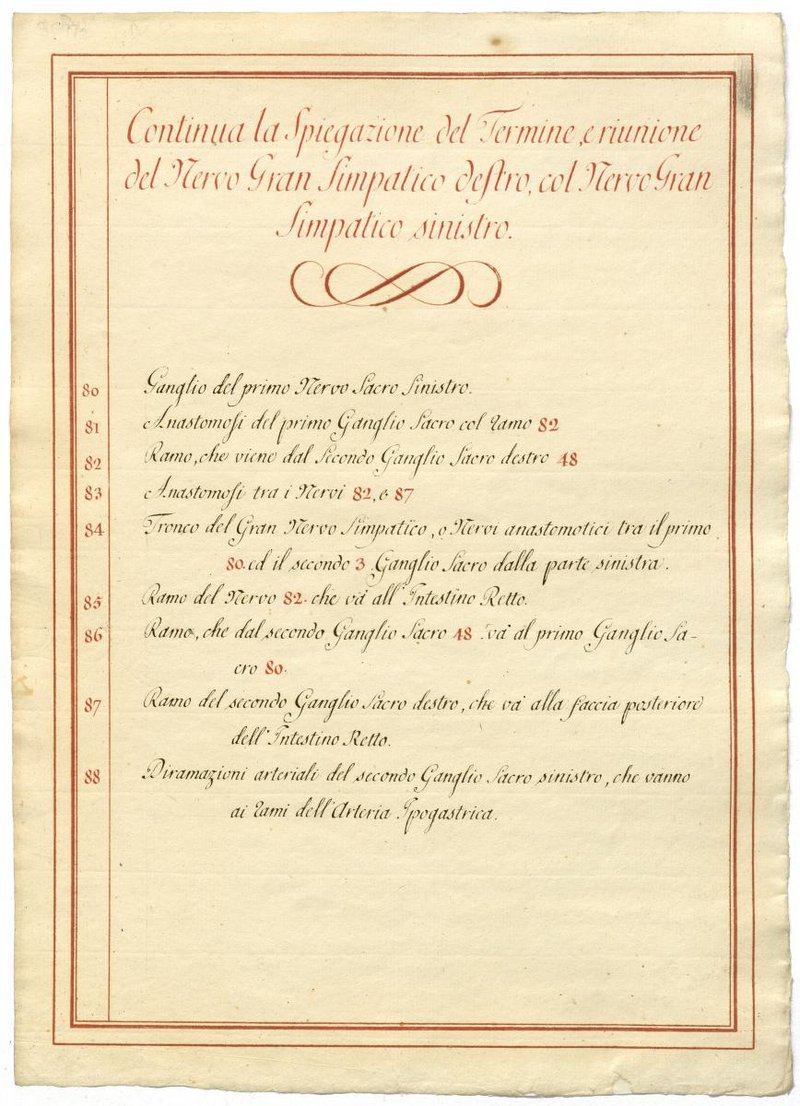 Continua la Spiegazione del Termine, e riunione
del Nervo Gran Simpatico destro, col Nervo Gran
Simpatico sinistro.
80 Ganglio del primo Nervo Sacro Sinistro.
81 Anastomosi del primo Ganglio Sacro col ramo 82
82 Ramo, che viene dal Secondo Ganglio Sacro destro 48
83 Anastomosi tra i Nervi 82, e 87
84 Tronco del Gran Nervo Simpatico, o Nervi anastomotici tra il primo
80. ed il secondo 3 Ganglio Sacro dalla parte sinistra.
85 Ramo del Nervo 82. che va all'Intestino Retto.
86 Ramo, che dal secondo Ganglio Sacro 48 va al primo Ganglio Sa-
cro 80.
87 Ramo del secondo Ganglio Sacro destro, che va alla faccia posteriore
dell'Intestino Retto.
88 Diramazioni arteriali del secondo Ganglio Sacro sinistro, che vanno
ai rami dell'Arteria Ipogastrica.